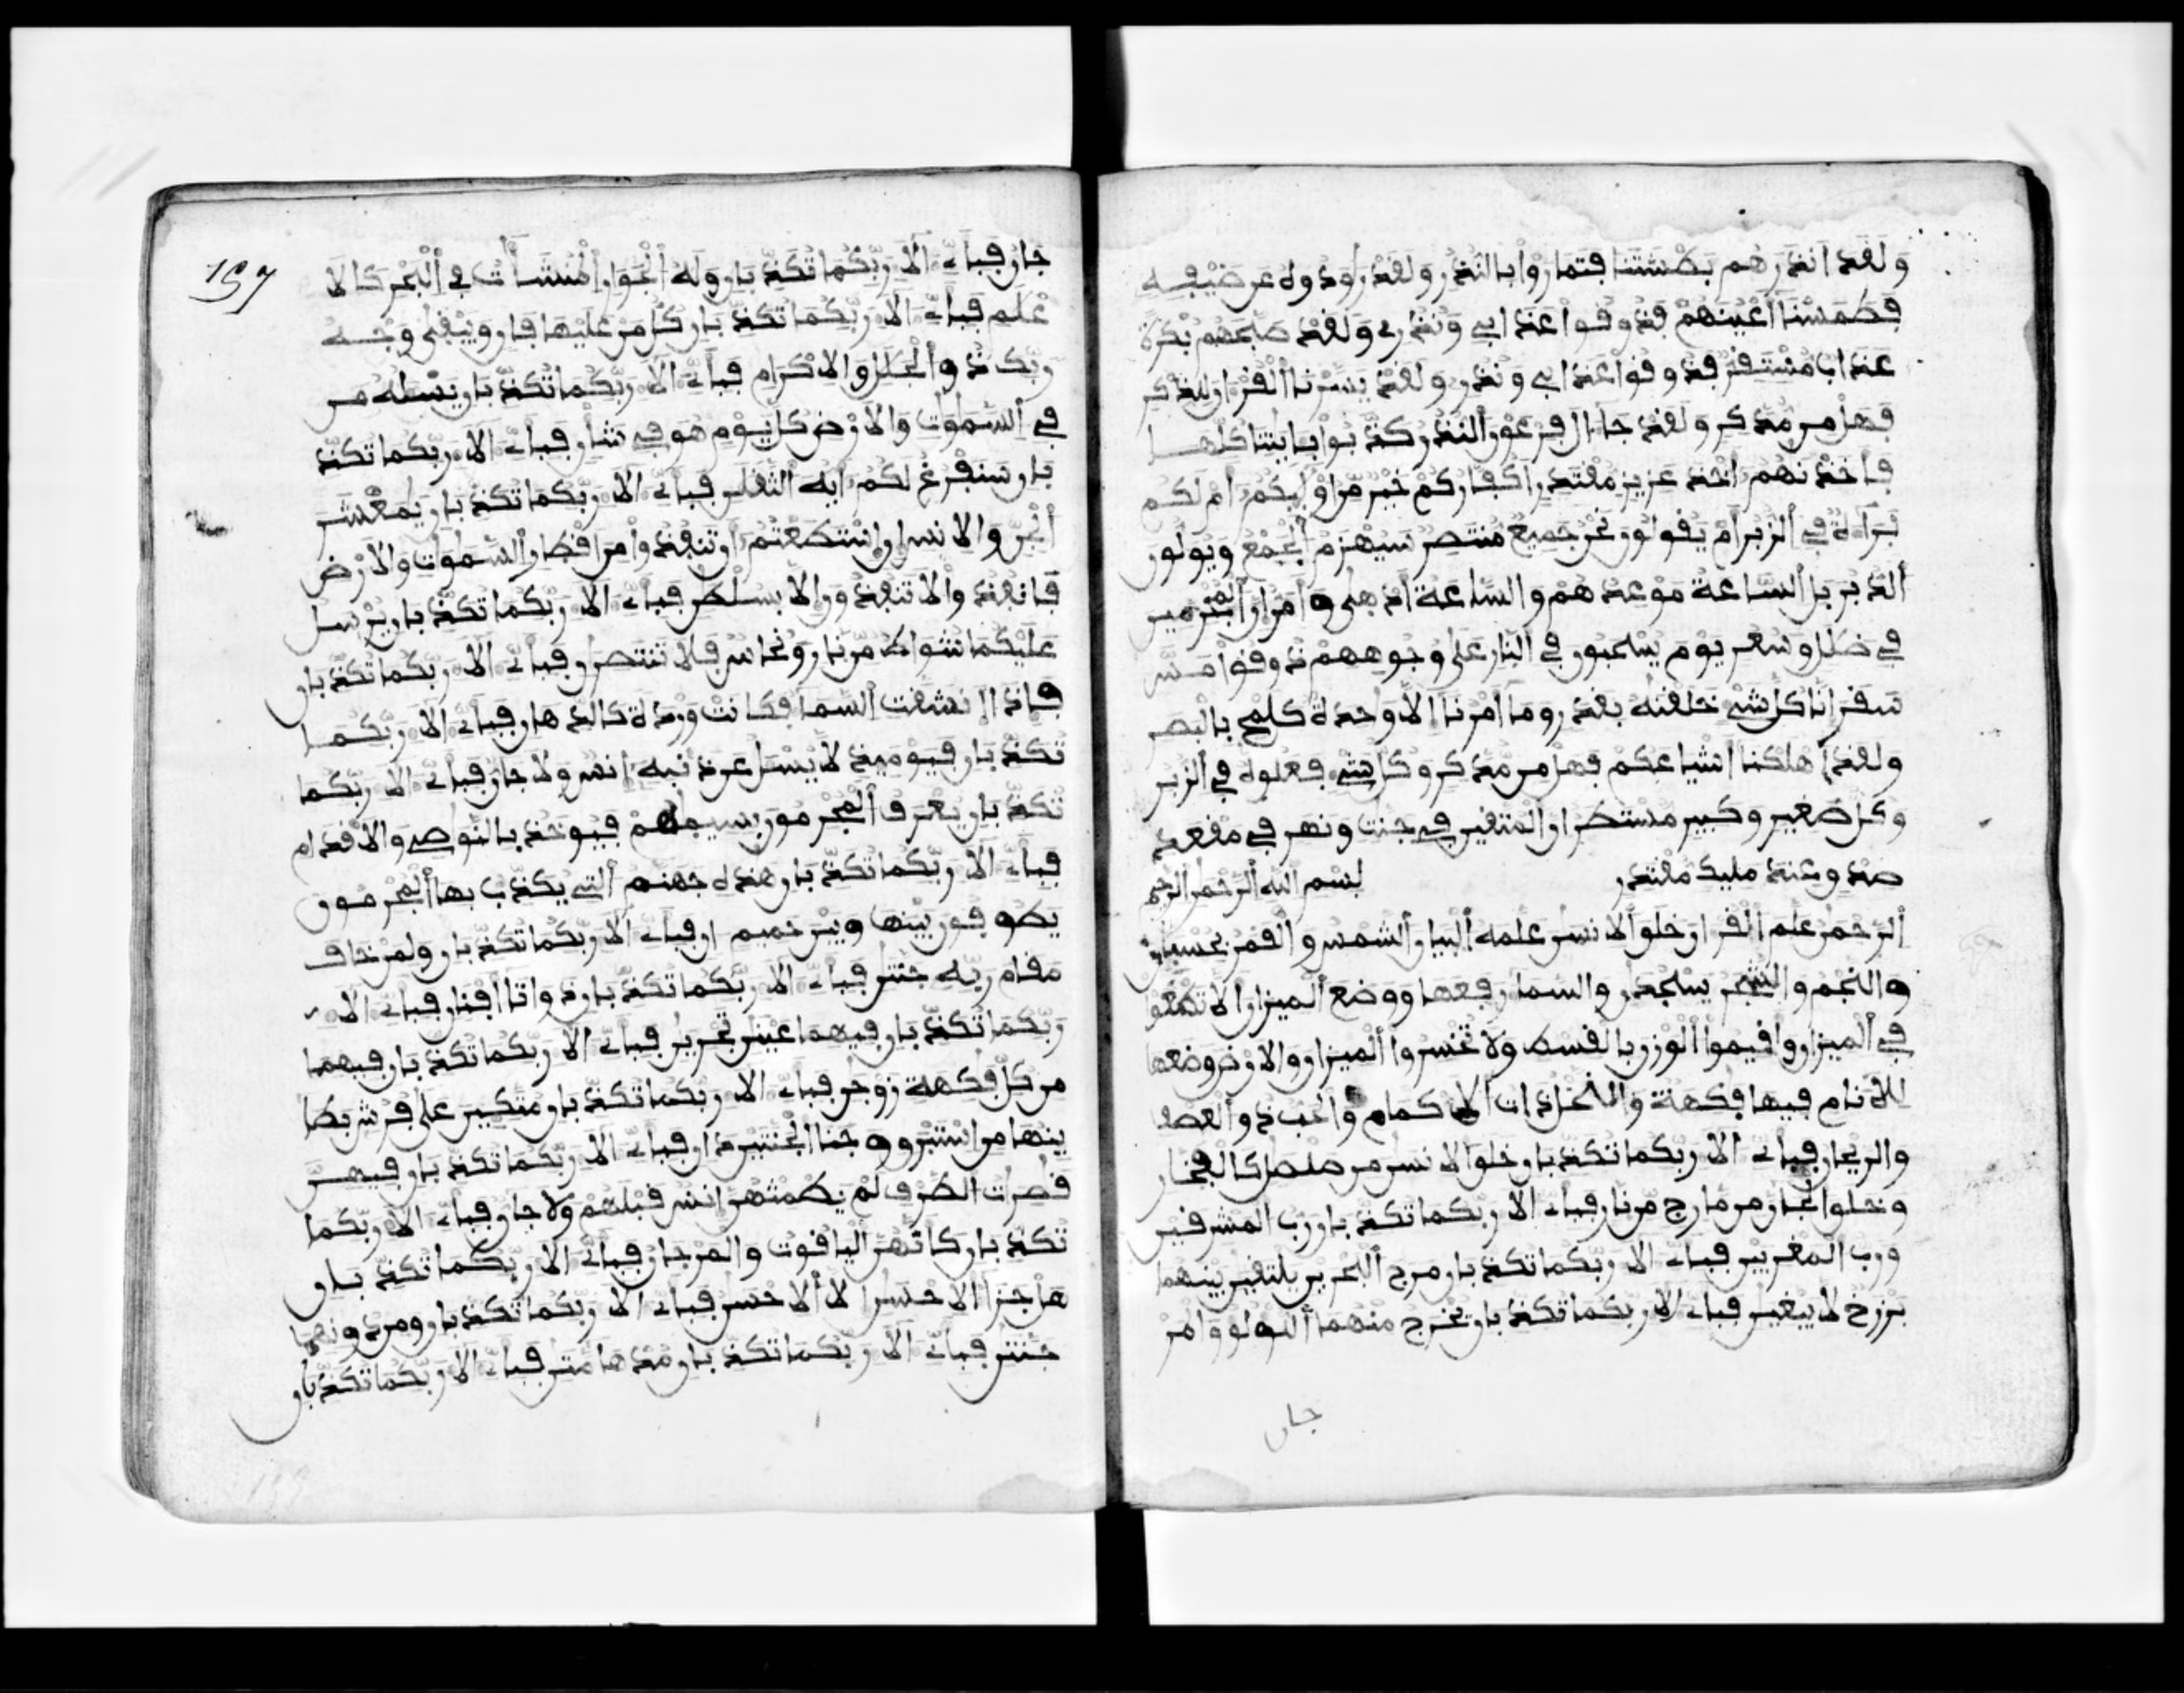 ولقد انذرهم بطشتنا فتماروا بالنذر ولقد رودوه عن ضيفه
فطمسنا أعينهم فذوقوا عذابي ونذر ولقد صبحهم بكرة
عذاب مستقر فذوقوا عذابي ونذر ولقد يسرنا القرءان للذكر
فهل من مدكر ولقد جاء ال فرعون النذر كذبوا بايتنا كلها
فاخذنهم اخذ عزيز مقتدر اكفاركم خير من اوليكم ام لكم
براءة في الزبر ام يقولون نحن جميع منتصر سيهزم الجمع ويولون
الدبر بل الساعة موعدهم والساعة ادهى وامر ان المجرمين
في ضلل وسعر يوم يسحبون في النار على وجوههم ذوقوا مس
سقر انا كل شيء خلقنه بقدر وما امرنا الا وحدة كلمح بالبصر
ولقد اهلكنا اشياعكم فهل من مدكر وكل شيء فعلوه في الزبر
وكل صغير وكبير مستطر ان المتقين في جنت ونهر في مقعد
صدق عند مليك مقتدر بسم الله الرحمن الرحيم
الرحمن علم القرءان خلق الانسن علمه البيان الشمس والقمر بحسبان
والنجم والشجر يسجدان والسما رفعها ووضع الميزان الا تطغوا
في الميزان واقيموا الوزن بالقسط ولا تخسروا الميزان والارض وضعها
للانام فيها فكهة والنخل ذات الاكمام والحب ذو العصف
والريحان فباي الا ربكما تكذبان خلق الانسن من صلصل كالفخار
وخلق الجان من مارج من نار فباي الا ربكما تكذبان رب المشرقين
ورب المغربين فباي الا ربكما تكذبان مرج البحرين يلتقين بينهما
برزخ لا يبغين فباي الا ربكما تكذبان يخرج منهما اللولو والمر
جان
157
جان فباي الا ربكما تكذبان وله الجوار المنشأت في البحر كالا
علم فباي الا ربكما تكذبان كل من عليها فان ويبقى وجه
ربك ذو الجلل والاكرام فباي الا ربكما تكذبان يسله من
في السموت والارض كل يوم هو في شان فباي الا ربكما تكذ
بان سنفرغ لكم ايه الثقلن فباي الا ربكما تكذبان يمعشر
الجن والانس ان استطعتم ان تنفذوا من اقطار السموت والارض
فانفذوا لا تنفذون الا بسلطن فباي الا ربكما تكذبان يرسل
عليكما شواظ من نار ونحاس فلا تنتصرن فباي الا ربكما تكذبان
فاذا انشقت السما فكانت وردة كالدهان فباي الا ربكما
تكذبان فيوميذ لا يسل عن ذنبه انس ولا جان فباي الا ربكما
تكذبان يعرف المجرمون بسيمهم فيوخذ بالنوصي والاقدام
فباي الا ربكما تكذبان هذه جهنم التي يكذب بها المجرمون
يطوفون بينها وبين حميم ان فباي الا ربكما تكذبان ولمن خاف
مقام ربه جنتن فباي الا ربكما تكذبان ذواتا افنان فباي الا
ربكما تكذبان فيهما عينن تجرين فباي الا ربكما تكذبان فيهما
من كل فكهة زوجن فباي الا ربكما تكذبان متكين على فرش بطا
ينها من استبرق وجنا الجنتين دان فباي الا ربكما تكذبان فيهن
قصرات الطرف لم يطمثهن انس قبلهم ولا جان فباي الا ربكما
تكذبان كانهن الياقوت والمرجان فباي الا ربكما تكذبان
هل جزا الاحسن الا الاحسن فباي الا ربكما تكذبان ومن دونهما
جنتن فباي الا ربكما تكذبان مدهامتن فباي الا ربكما تكذبان